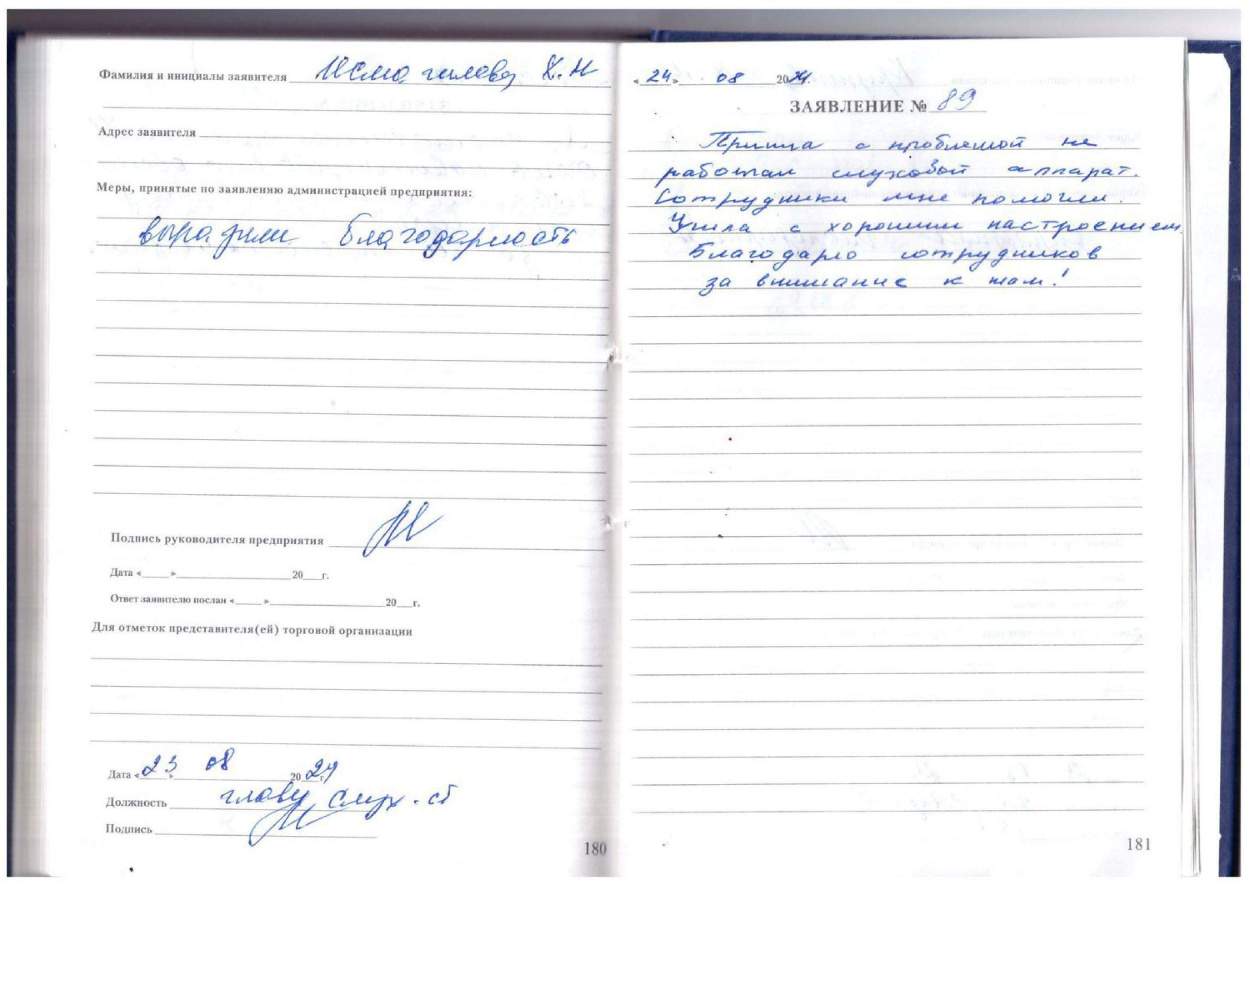 Фамилия и инициалы заявителя Исмагилова Х.Н
Адрес заявителя
Меры, принятые по заявлению администрацией предприятия:
выразили благодарность
Подпись руководителя предприятия
Дата «____»____________20___г.
Ответ заявителю послан «____»____________20___г.
Для отметок представителя(ей) торговой организации
Дата «23» 08 2024г
Должность
Подпись
180
«24» 08 2024г.
ЗАЯВЛЕНИЕ № 89
Пришла с проблемой не
работал слуховой аппарат.
Сотрудники мне помогли.
Ушла с хорошим настроением
Благодарю сотрудников
за внимание к нам!
181